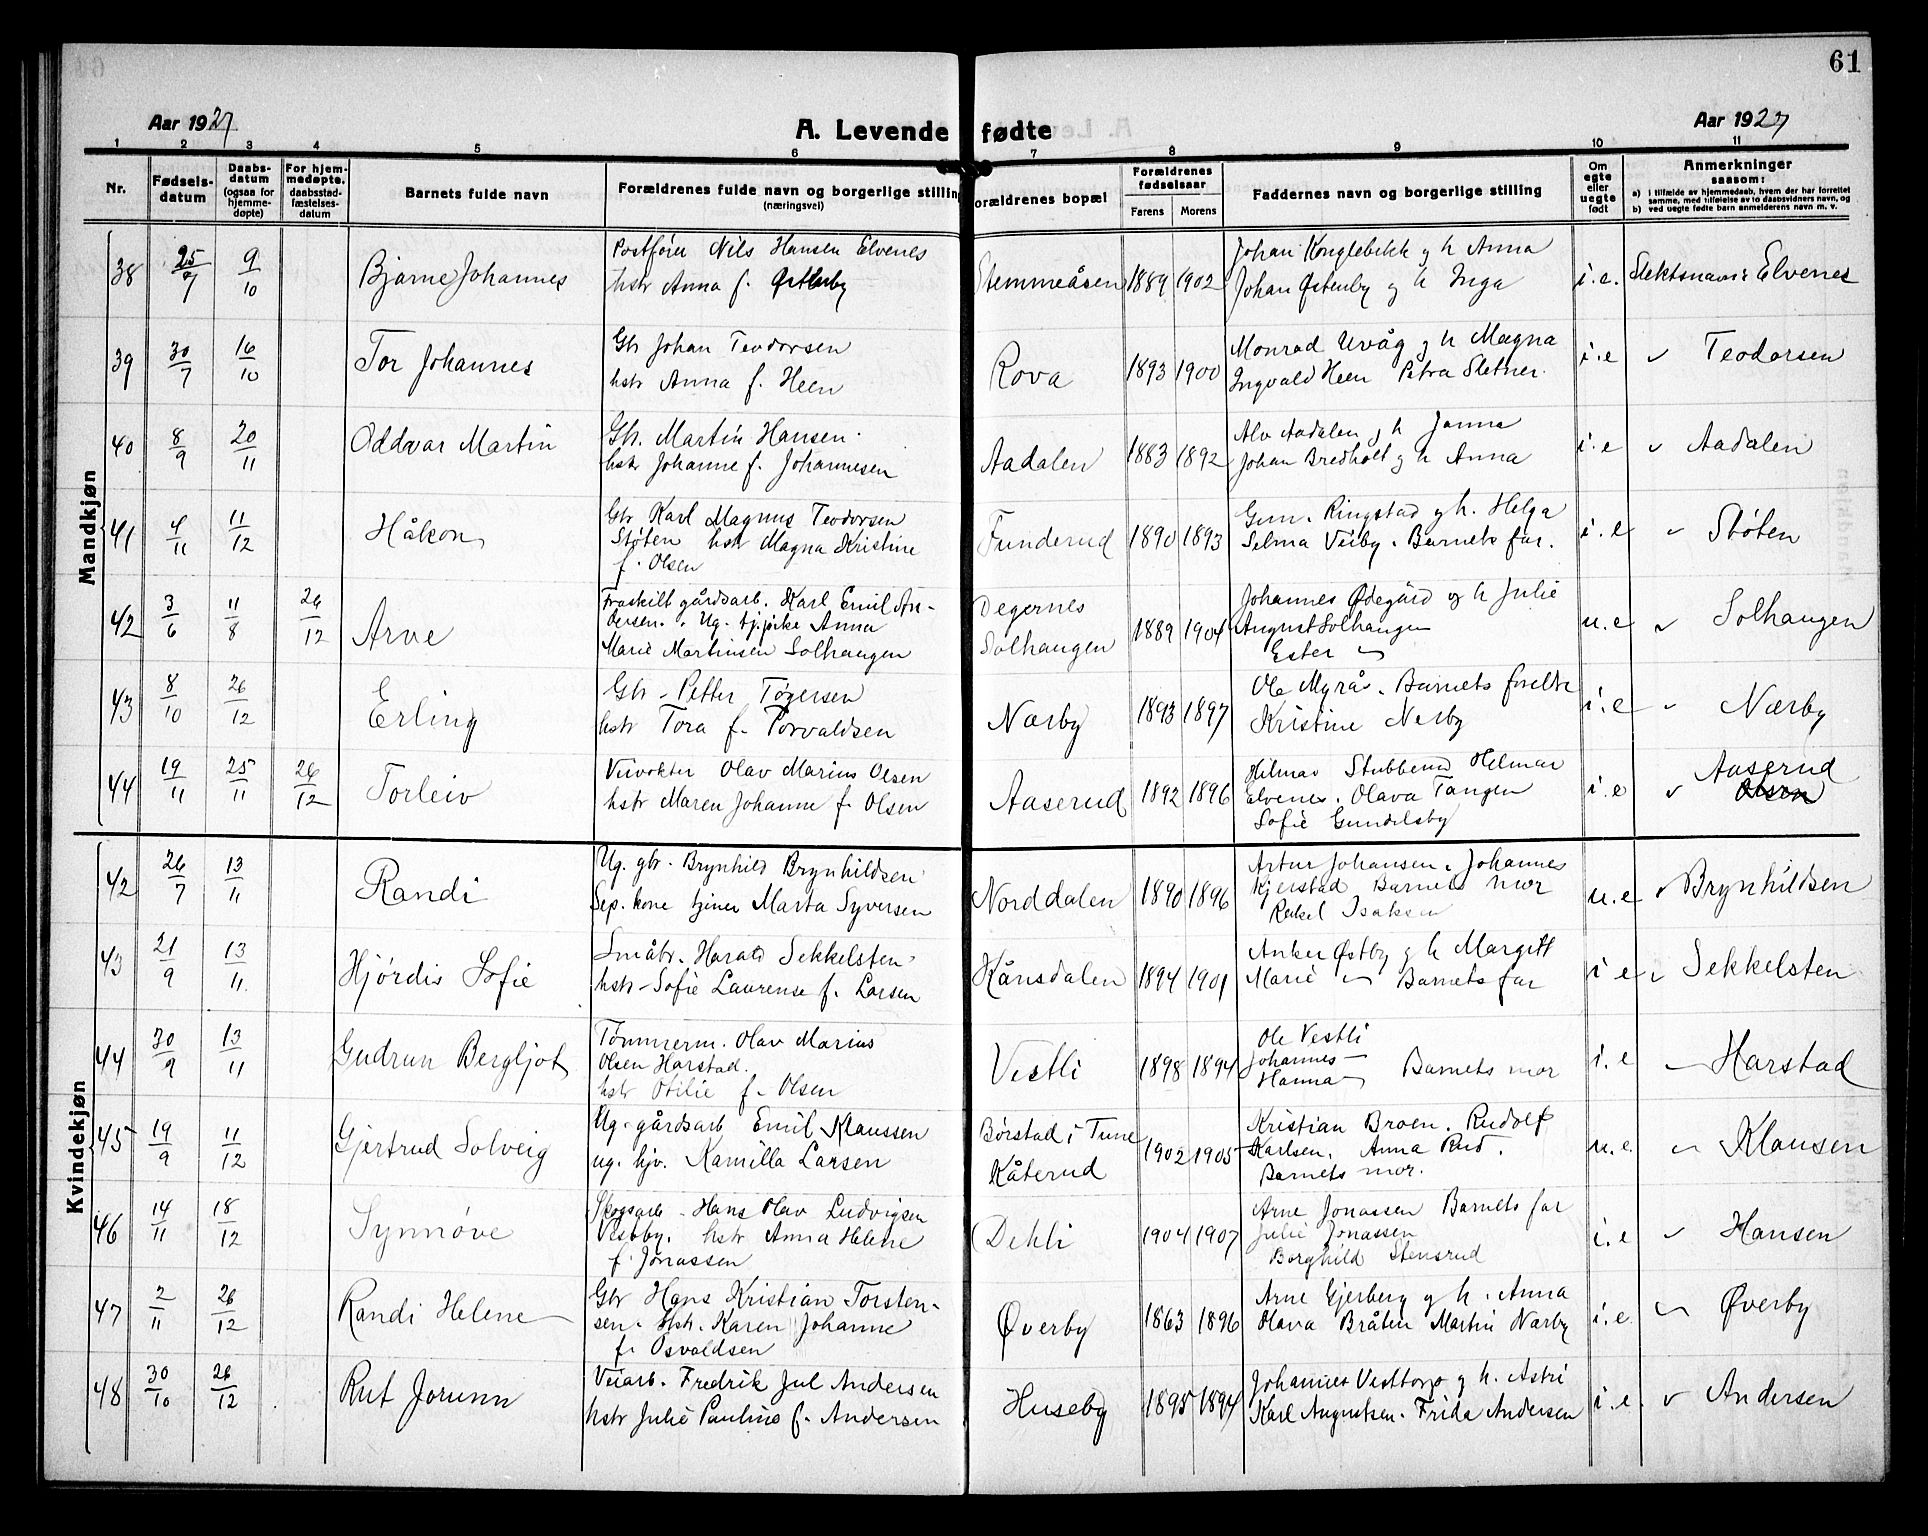 61
Aar 1927
A. Levende fødte
Aar 1927
1 2 3 4 5 6 7 8 9 10 11
Nr.
Fødselsdatum
Daabsdatum (ogsaa for hjemmedøpte)
For hjemmedøpte. daabsstadfæstelsesdatum
Barnets fulde navn
Forældrenes fulde navn og borgerlige stilling (næringsvei)
orældrenes bopæl
Forældrenes fødselsaar
Farens Morens
Faddernes navn og borgerlige stilling
Om egte eller uegte født
Anmerkninger saasom:
a) i tilfælde av hjemmedaab, hvem der har forrettet samme, med tilføielse av to daabsvidners navn, og
b) ved uegte fødte barn anmelderens navn m. v.
Mandkjøn
38 25/7 9/10 Bjarne Johannes
Postfører Nils Hansen Elvenes
hstr Anna f. Østenby
Stemmeåsen 1889 1902
Johan Konglebekk og h Anna
Johan Østenby og h Inga
i.e. Slektsnavn: Elvenes
39 30/7 16/10 Tor Johannes
Gbr Johan Teodorsen
hstr Anna f. Heen
Rova 1893 1900
Monrad Uvåg og h Magna
Ingvald Heen Petra Sletner.
i.e " Teodorsen
40 8/9 20/11 Oddvar Martin
Gbr. Martin Hansen.
hstr Johanne f. Johannesen
Aadalen 1883 1892
Alv Aadalen og h Janna
Johan Bredholt og h Anna
i.e " Aadalen
41 4/11 11/12 Håkon
Gbr Karl Magnus Teodorsen
Støten hstr Magna Kristine
f. Olsen
Funderud 1890 1893
Gun. Ringstad og h. Helga
Selma Veiby. Barnets far.
i.e " Støten
42 3/6 11/8 26/12 Arve
Fraskilt gårdsarb. Karl Emil An-
dersen. Ug. tj.pike Anna
Marie Martinsen Solhaugen
Degernes
Solhaugen 1889 1904
Johannes Ødegård og h Julie
August Solhaugen
Ester "
u.e " Solhaugen
43 8/10 26/12 Erling
Gbr - Petter Tøgersen
hstr Tora f. Torvaldsen
Nærby 1893 1897
Ole Myrå. Barnets foreldre
Kristine Nærby
i.e " Nærby
44 19/11 25/11 26/12 Torleiv
Veivokter Olav Marius Olsen
hstr Maren Johanne f. Olsen
Aaserud 1892 1896
Hilmar Stubberud Helmar
Elvenes. Olava Tangen
Sofie Gundelsby
i.e " Aaserud
Olsen
Kvindekjøn
42 26/7 13/11 Randi
Ug. gbr. Brynhild Brynhildsen
Sep. kone tjener Marta Syversen
Norddalen 1890 1896
Artur Johansen. Johannes
Kjerstad Barnets mor
Rakel Isaksen
u.e " Brynhildsen
43 21/9 13/11. Hjördis Sofie
Småbr. Harald Sekkelsten
hstr - Sofie Laurense f. Larsen
Hånsdalen 1894 1901
Anker Østby og h Margitt
Marie " Barnets far
i.e " Sekkelsten
44 30/9 13/11 Gudrun Bergljot
Tømmerm. Olav Marius
Olsen Harstad.
hstr Otilie f. Olsen
Vestli 1898 1894
Ole Vestli
Johannes "
Hanna " Barnets mor
i.e " Harstad
45 19/9 11/12 Gjertrud Solveig
Ug. gårdsarb Emil Klaussen
ug. hjv. Kamilla Larsen
Børstad i Tune
Kåterud 1902 1905
Kristian Broen. Rudolf
Karlsen. Anna Rud.
Barnets mor.
u.e. " Klausen
46 14/11 18/12 Synnöve
Skogsarb - Hans Olav Ludvigsen
Vesby. hstr Anna Helene
f. Jonassen
Dehli 1904 1907
Arne Jonassen Barnets far
Julie Jonassen
Borghild Stensrud
i.e " Hansen
47 2/11 26/12 Randi Helene
Gbr Hans Kristian Torsten-
sen. Hstr. Karen Johanne
f. Osvaldsen
Øverby 1863 1896
Arne Gjerberg og h. Anna
Olava Bråten Martin Nærby
i.e. " Øverby
48 30/10 26/12 Rut Jorunn
Veiarb. Fredrik Jul Andersen
hstr Julie Pauline f. Andersen
Huseby 1895 1894
Johannes Vesttorp og h. Astri
Karl Augustsen. Frida Andersen
i.e. " Andersen